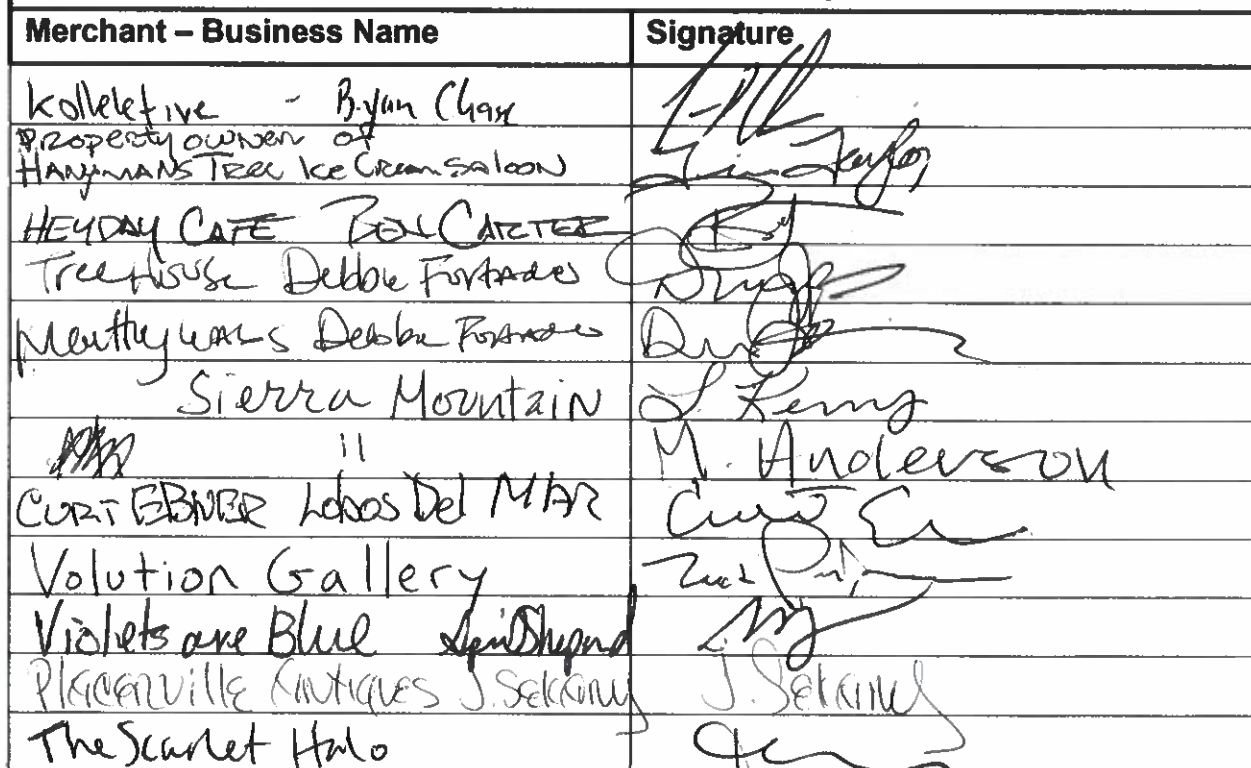 Merchant – Business Name Signature
Kolleletive - Bryan Chax
Property owner of
HANgMANS TREE Ice Cream Saloon Tim Taylor
HEYDAY CAFE BEN CARTER
Treehouse Debbie Furtado
Debbie Furtado
Sierra Mountain L. Kenny
" M. Anderson
CURT EBNER Lobos Del MAR Curt E
Volution Gallery
Violets are Blue Shepard
Placerville Antiques J. Sekany J. Sekany
The Scarlet Halo